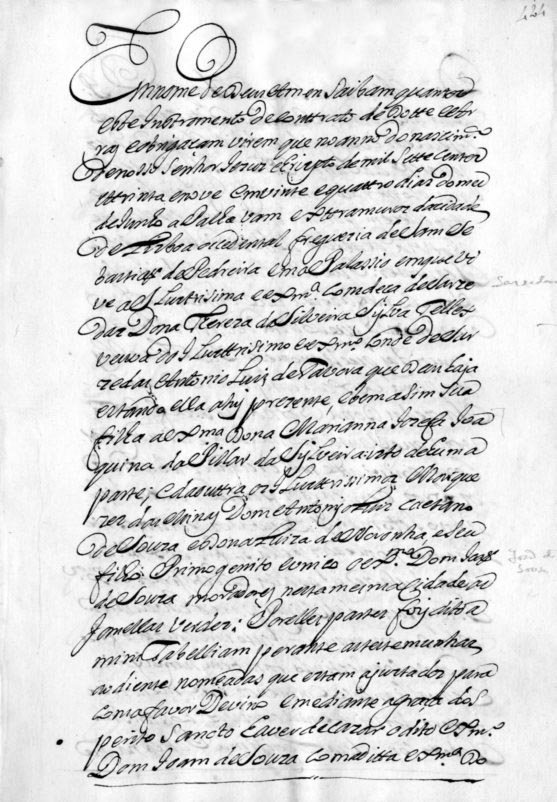 424
Em nome de Deus Amen Saibam quantos
este Instromento de conttrato de Dotte e Ar
ras e obrigacam virem que no anno do nascim.to
de nosso Senhor Jesus Christo de mil Sette Centos
e ttrinta e nove em vinte e quattro dias do mes
de Junho a Palla vam exttramuros da cidade
de Lisboa occidental freguezia de Sam Se
bastiaõ da Pedreira em o Palassio em que vi
ve a Illusttrissima e ex.ma Condeca de Sarze
das Dona Thereza da Silveira Sylva Telles
veuva do Illusttrissimo e ex.mo Conde de Sar
zedas Antonio Luis de Tavora que Deus haja
estando ella ahy prezente, e bem asim sua
filha a ex.ma Dona Marianna Josefa Joa
quina do Pillar da Sylveira isto de huma
parte; e da outtra os Illusttrissimos Marque
zes das Minas Dom Antonjo Luis Caetano
de Souza e Dona Luiza de Noronha, e seu
filho Primogenito e unico o ex.mo Dom Joaõ
de Souza moradores nesta mesma Cidade as
Janellas verdes: Por elles partes foy ditto a
mim Tabelliam perante as testemunhas
ao diente nomeadas que estam ajustados para
com o favor Devino e mediante a graca do es
perito Sancto haver de cazar o dito ex.mo
Dom Joam de Souza com a ditta ex.ma Do
Sarzedas
João de
Souza